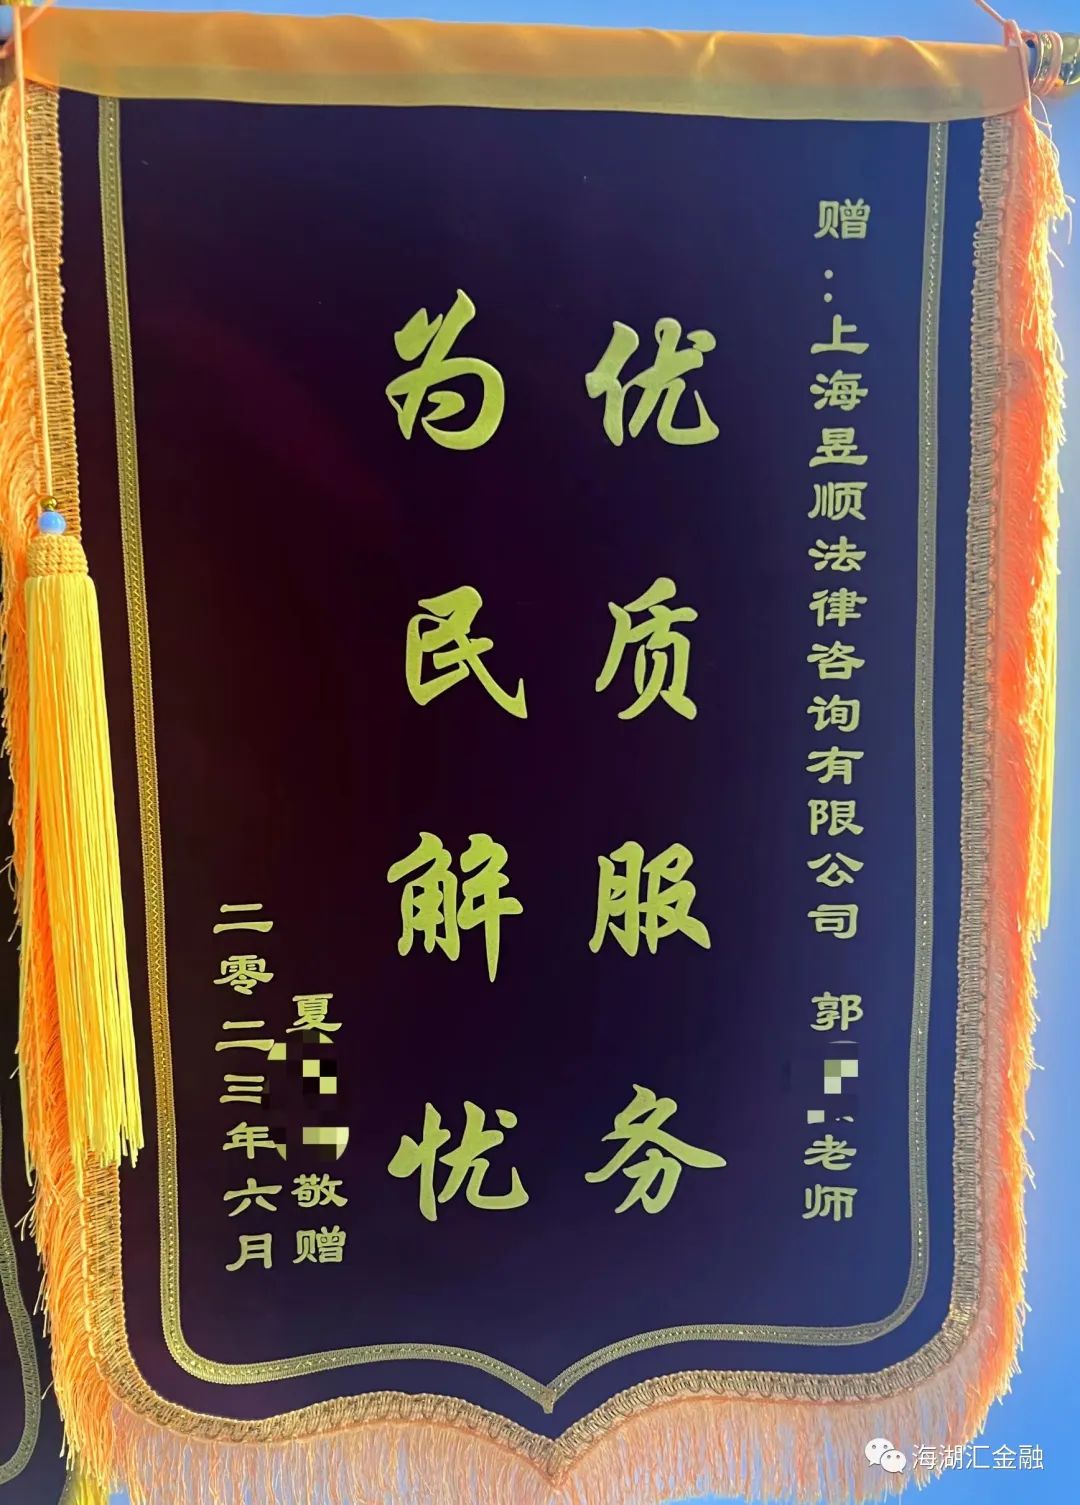 赠：上海昱顺法律咨询有限公司 郭老师
优质服务
为民解忧
夏敬赠
二零二三年六月
海湖汇金融